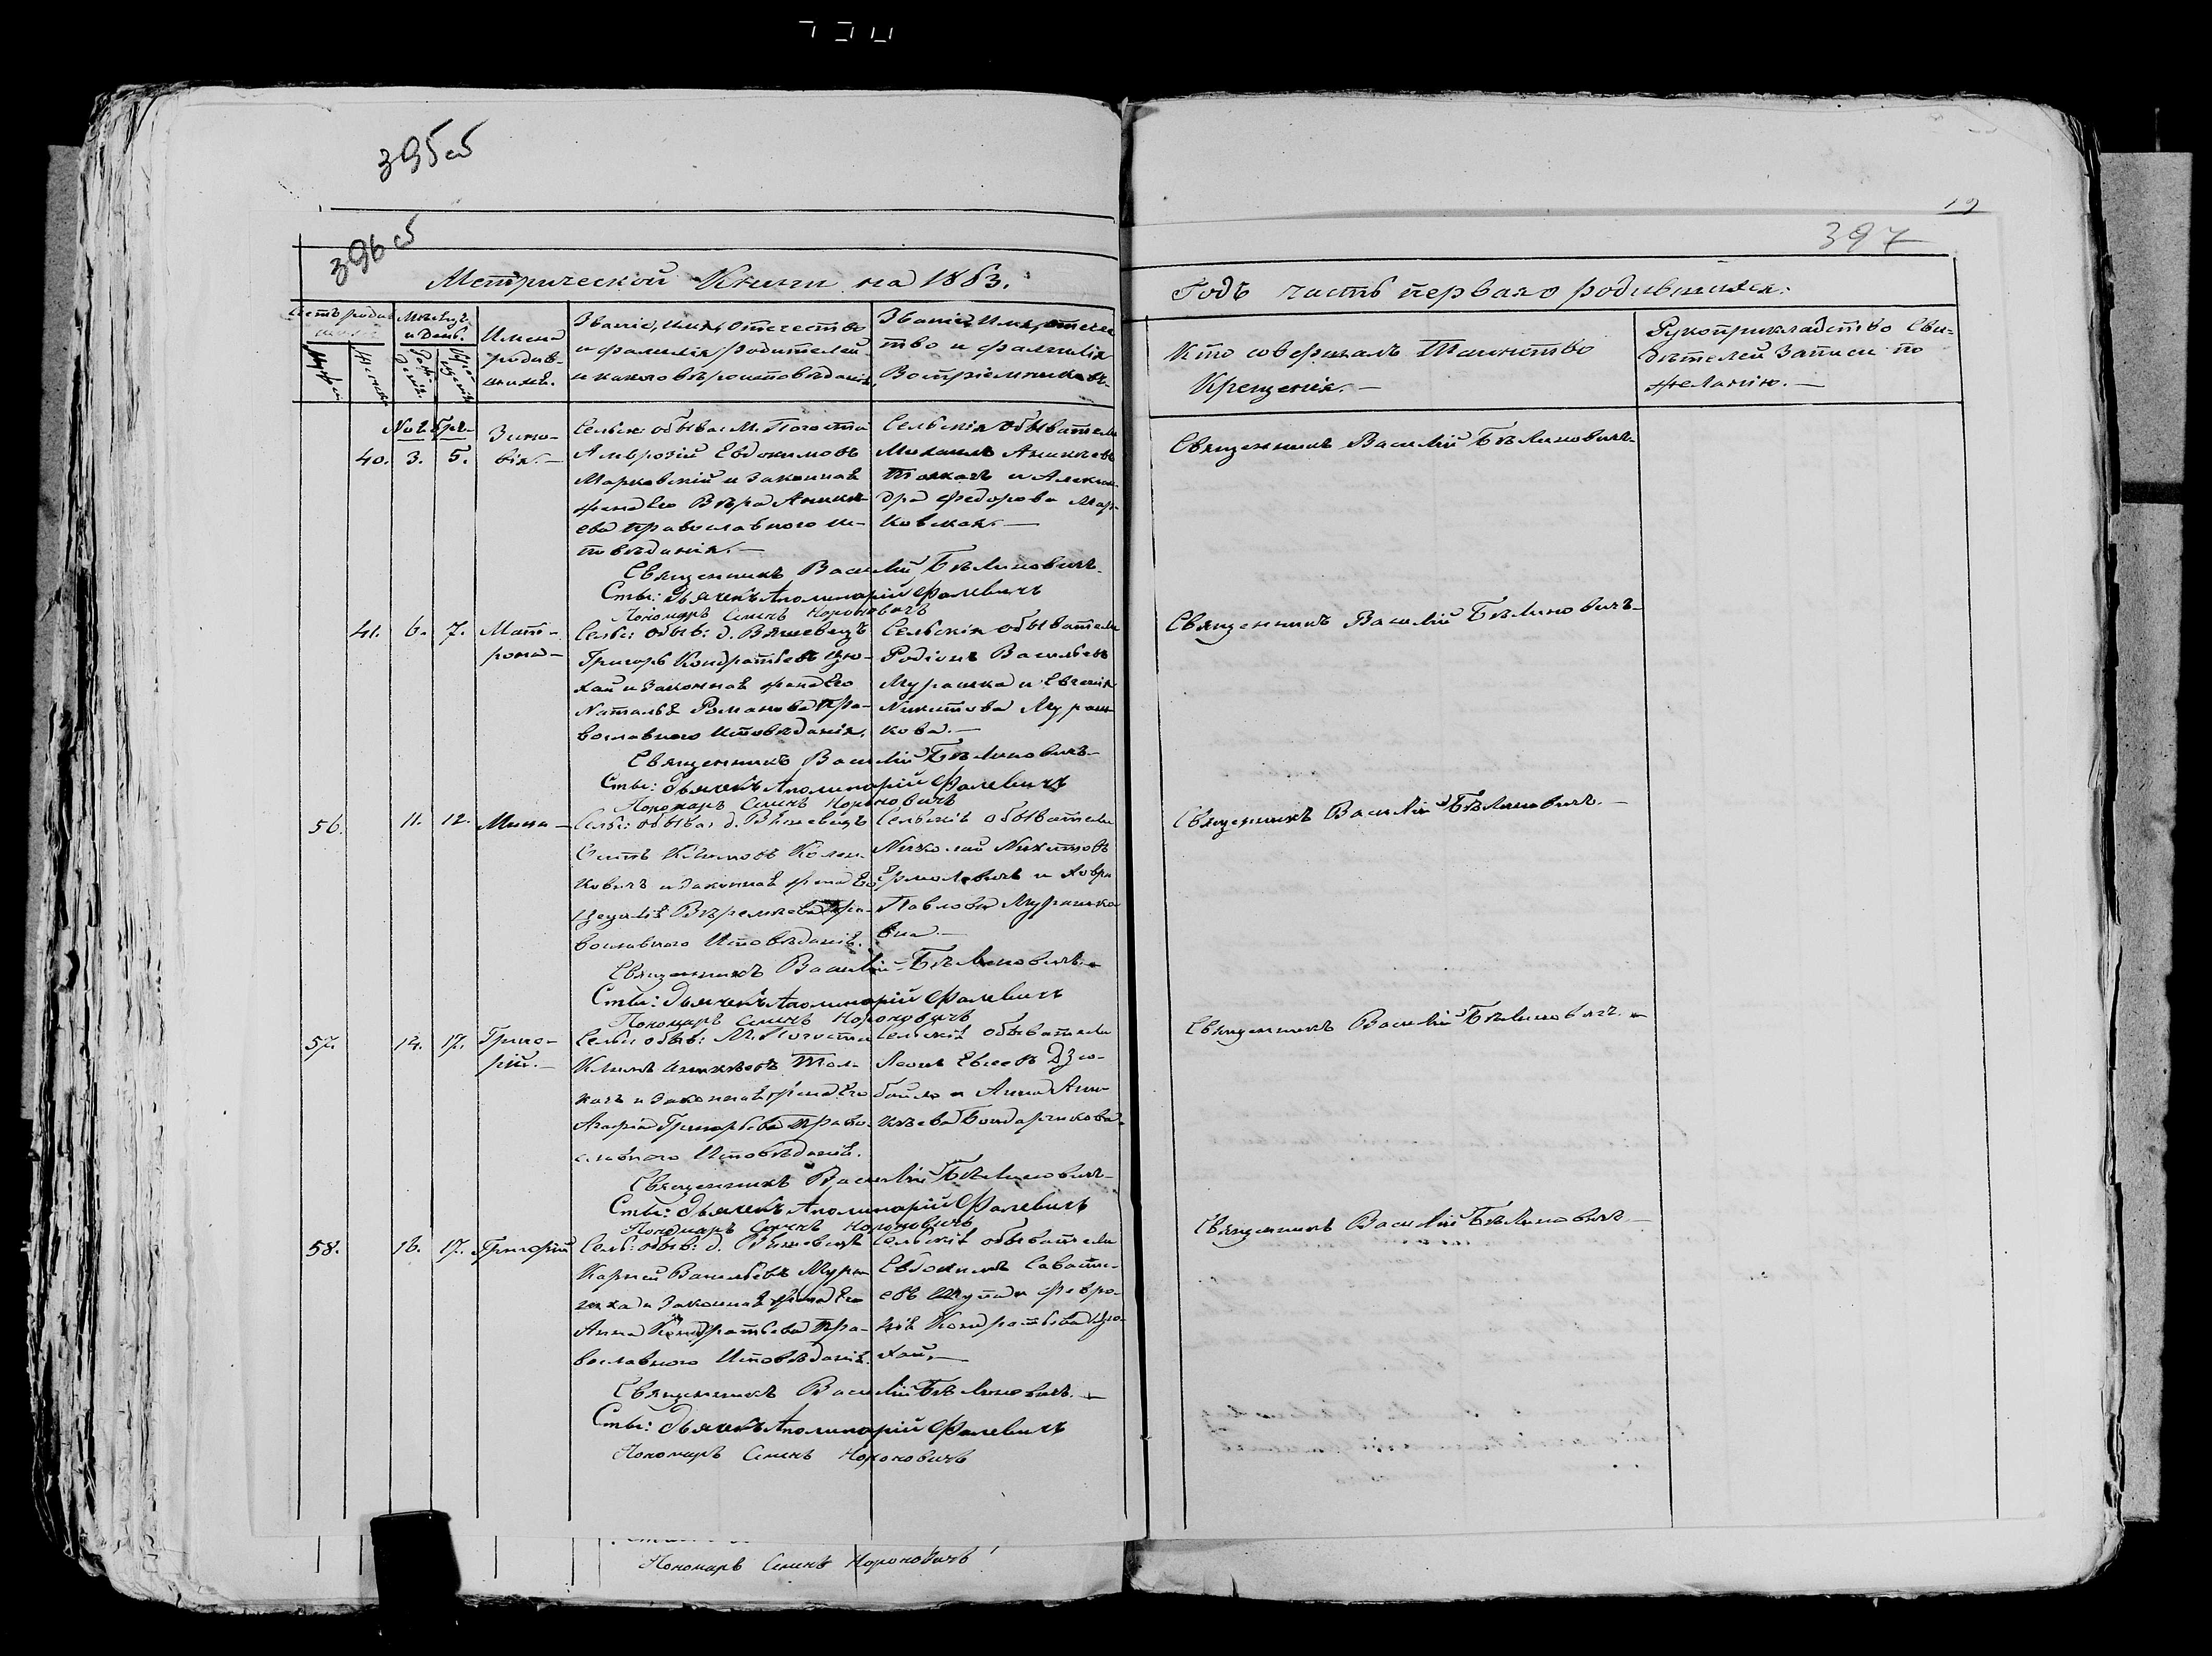 395об
396об
19
397
Метрической Книги на 1863.
Годъ часть первая о родившихся.
Счетъ родив-
шихся
Мѣсяцъ
и День.
Имена
родив-
шихся.
Званіе, имя, отечество
и фамилія родителей
и какого вѣроисповѣданія.
Званіе, Имя, отече
ство и фамилія
Воспріемниковъ.
Кто совершалъ Таинство
Крещенія. —
Рукоприкладство Сви-
дѣтелей Записи по
желанію. —
40. 3. 5. Зино-
вія. —
Сельск: обыва: М. Погоста
Амвросій Евдокимовъ
Марковскій и Законная
жена Его Вѣра Аники-
ева православного ис-
повѣданія. —
Сельскія обыватели
Михаилъ Аникѣевъ
Толкачъ и Алексан-
дра Федорова Мар-
ковская. —
Священникъ Василій Бѣлиновичъ
Священникъ Василій Бѣлиновичъ.
Сты: Дьячекъ Аполинарій Фалевичъ
Пономарь Семенъ Нороновичъ
41. 6. 7. Мат-
рона —
Сельс: обыв: д. Вяшевецъ
Григорь Кондратьевъ Цю-
хай и Законная жена Его
Наталья Романова Пра-
вославного Исповѣданія.
Сельскія обыватели
Родіонъ Васильевъ
Мурашка и Евгенія
Никитова Мураш-
кова. —
Священникъ Василій Бѣлиновичъ
Священникъ Василій Бѣлиновичъ
Сты: Дьячекъ Аполинарій Фалевичъ
Пономарь Семенъ Нороновичъ
56. 11. 12. Мина —
Сельс: обыва: д. Вяшевецъ
Климовъ
ковичъ и законная жена Его
православного Исповѣданія.
Сельскіе обыватели
Николай Никитовъ
Ермоловичъ и Ховра
Павлова Мурашко
вна. —
Священникъ Василій Бѣлиновичъ. —
Священникъ Василій Бѣлиновичъ. —
Сты: Дьячекъ Аполинарій Фалевичъ
Пономарь Семенъ Нороновичъ
57. 14. 17. Григо-
рій. —
Сельс: обыв: М. Погоста
Климъ Аникѣевъ Тол-
качъ и Законная жена Его
Агафія Григорьева Право-
славного Исповѣданія.
Сельскія обыватели
Леонъ Евсеевъ Дзю-
байло и Анна Ани-
кѣева Бондарчикова.
Священникъ Василій Бѣлиновичъ. —
Священникъ Василій Бѣлиновичъ
Сты: Дьячекъ Аполинарій Фалевичъ
Пономарь Семенъ Нороновичъ
58. 16. 17. Григорій
Сельс: обыв: д. Вяшевецъ
Карпей Васильевъ Мура
шка и Законная жена Его
Анна Кондратьева Пра-
вославного Исповѣданія.
Сельскія обыватели
Евдокимъ Савасте-
евъ Шупа и Февро-
нія Кондратьева Цю-
хай. —
Священникъ Василій Бѣлиновичъ. —
Священникъ Василій Бѣлиновичъ. —
Сты: Дьячекъ Аполинарій Фалевичъ
Пономарь Семенъ Нороновичъ
Пономарь Семенъ Нороновичъ